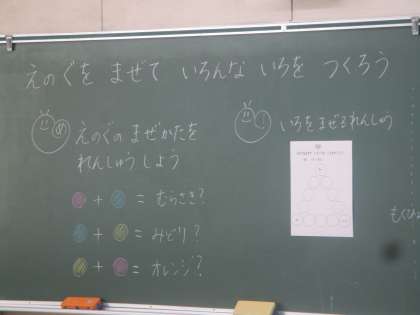 えのぐを まぜて いろんな いろを つくろう
えのぐの まぜかたを
れんしゅうしよう
+ = むらさき?
+ = みどり?
+ = オレンジ?
いろをまぜるれんしゅう
もくひょ